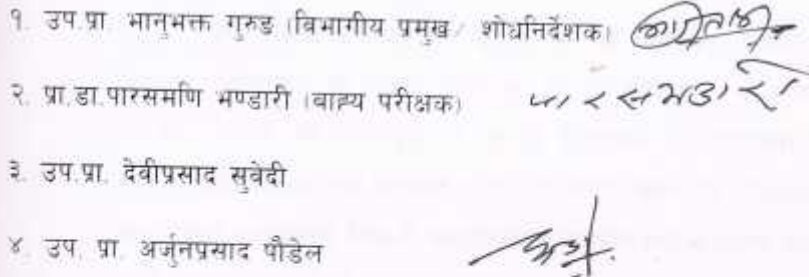 १. उप.प्रा. भानुभक्त गुरुङ (विभागीय प्रमुख/ शोधनिर्देशक)
२. प्रा.डा.पारसमणि भण्डारी (बाह्य परीक्षक)
३. उप.प्रा. देवीप्रसाद सुवेदी
४. उप. प्रा. अर्जुनप्रसाद पौडेल